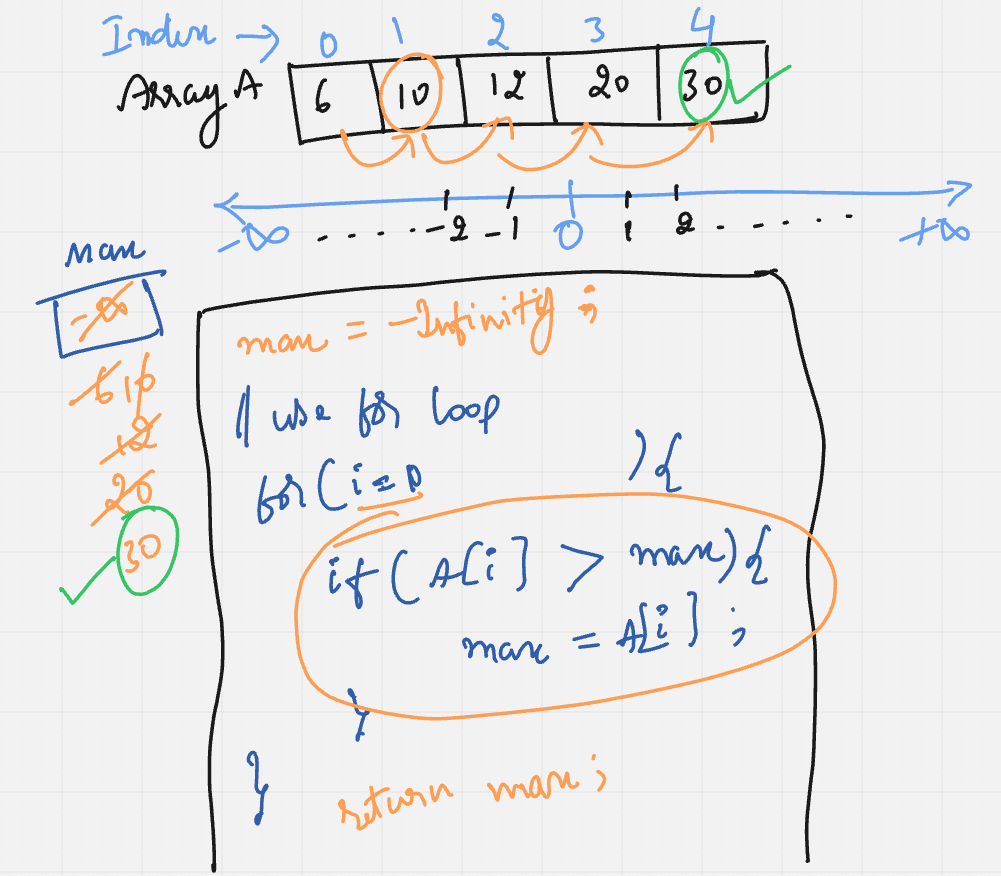 Index → 0 1 2 3 4
Array A 6 10 12 20 30
-∞ ...... -2 -1 0 1 2 ...... +∞
max
-∞
6 10
12
20
30
max = -Infinity ;
// use for loop
for ( i=0 ) {
if ( A[i] > max ) {
max = A[i] ;
}
}
return max ;